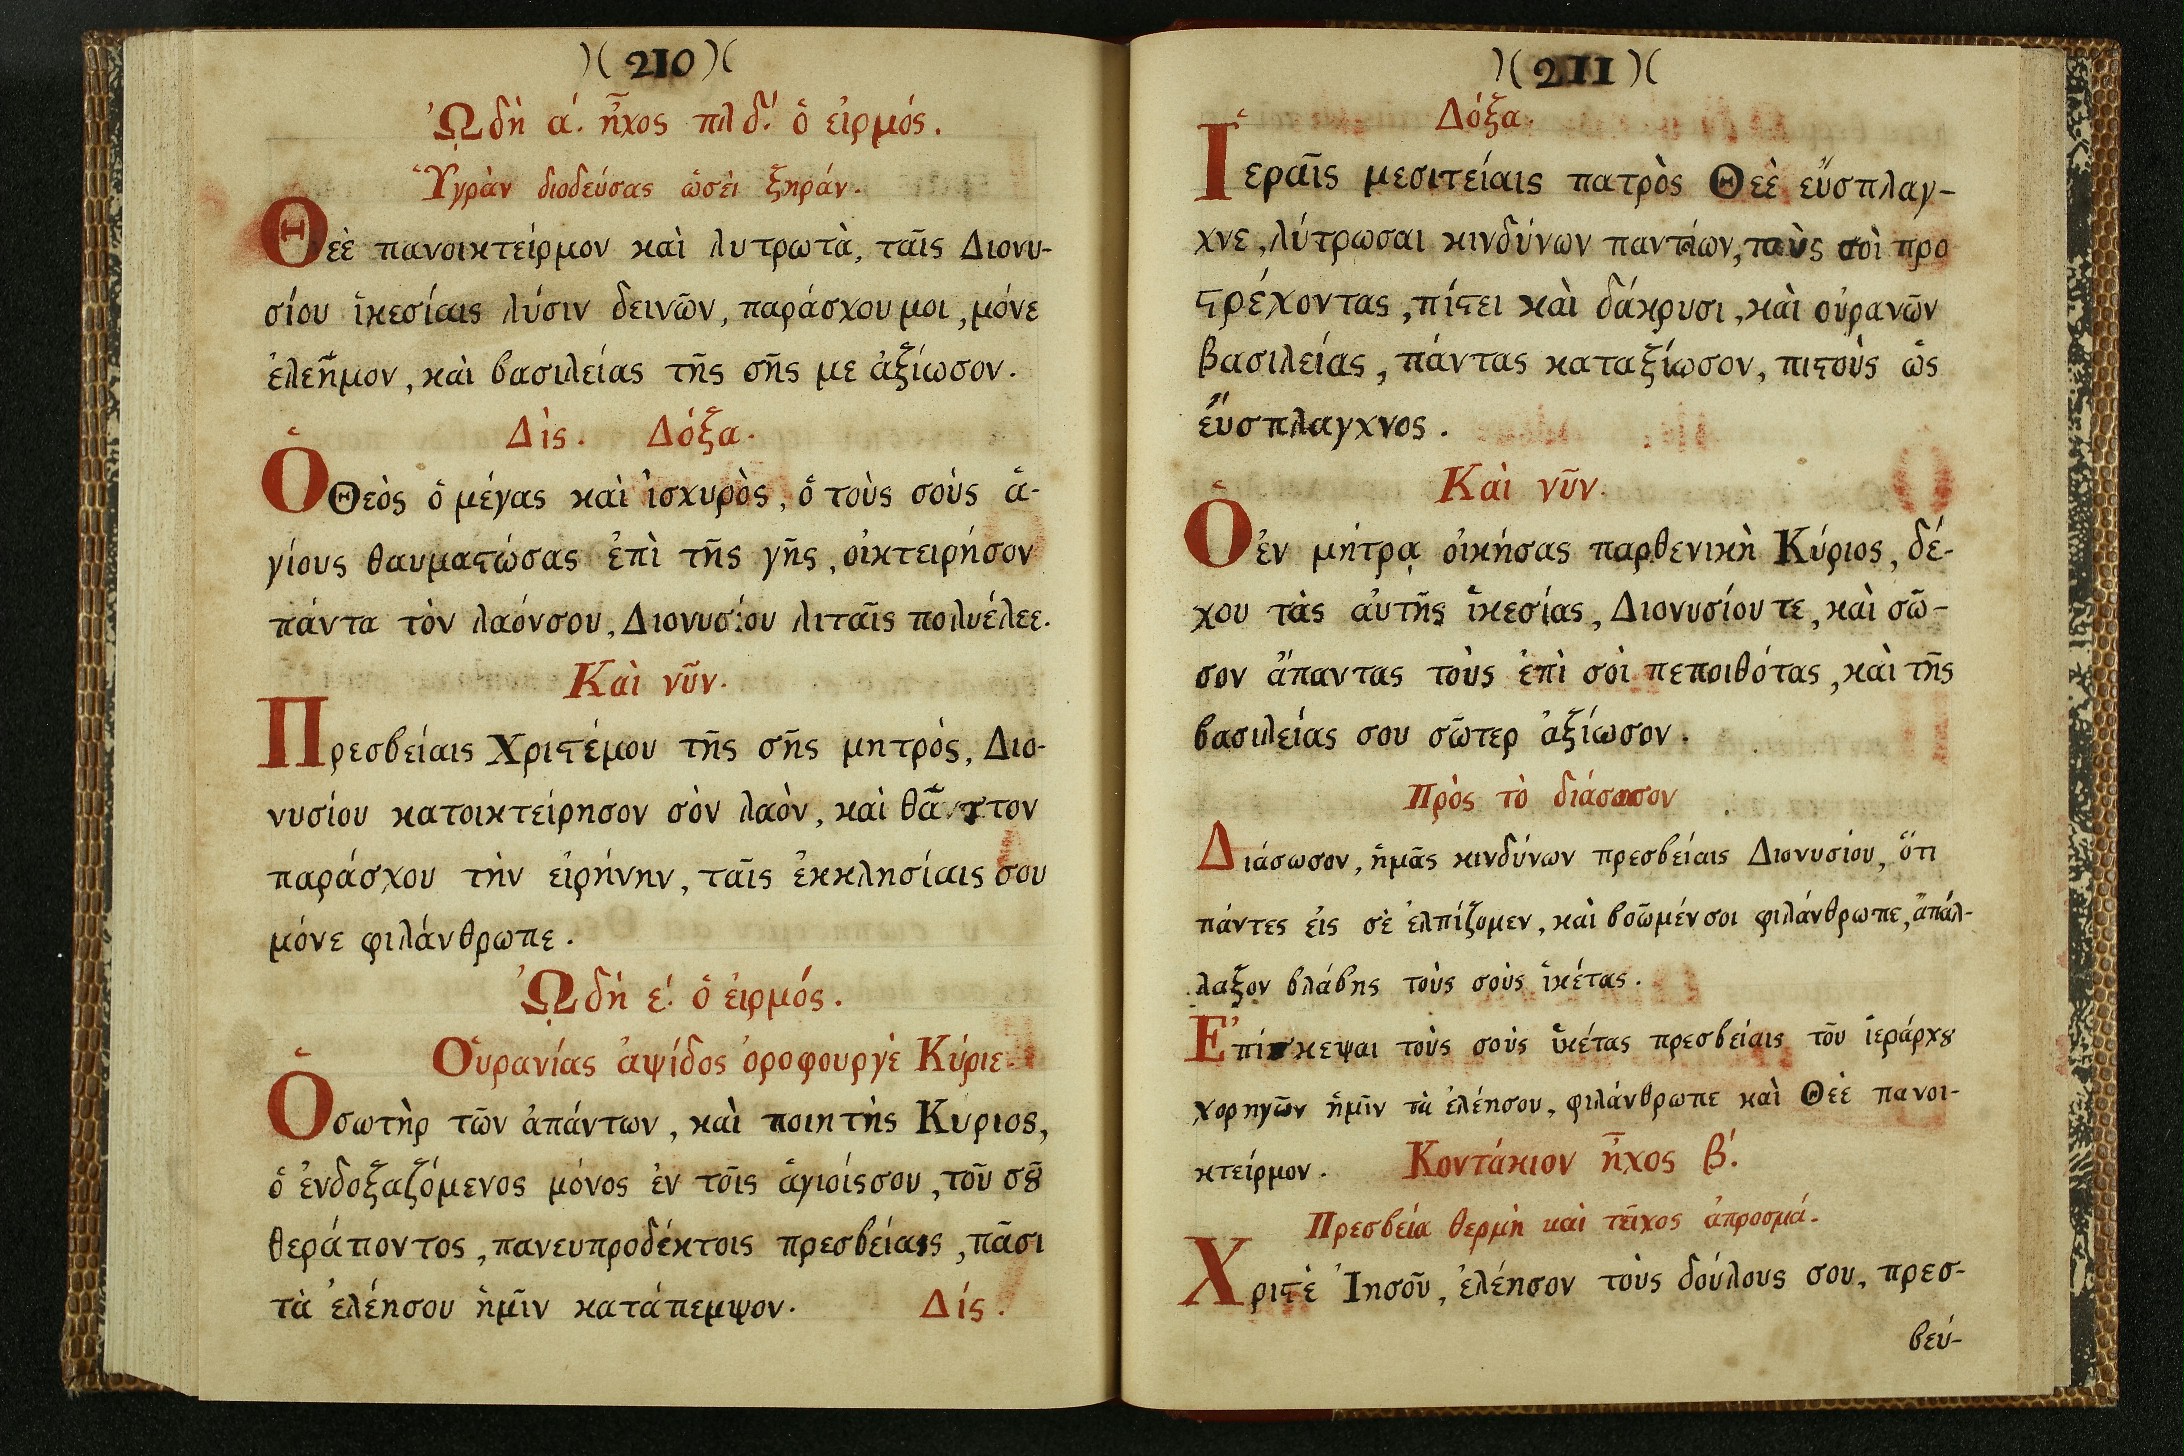 )( 210 )(
Ὠδὴ α΄. ἦχος πλ δ΄. ὁ εἱρμός.
Ὑγρὰν διοδεύσας ὡσεὶ ξηράν.
Θεὲ πανοικτείρμον καὶ λυτρωτὰ, ταῖς Διονυ-
σίου ἱκεσίαις λύσιν δεινῶν, παράσχου μοι, μόνε
ἐλεῆμον, καὶ βασιλείας τῆς σῆς με ἀξίωσον.
Δὶς. Δόξα.
Ὁ Θεὸς ὁ μέγας καὶ ἰσχυρὸς, ὁ τοὺς σοὺς ἁ-
γίους θαυμαϛώσας ἐπὶ τῆς γῆς, οἰκτειρήσον
πάντα τὸν λαόνσου, Διονυσίου λιταῖς πολυέλεε.
Καὶ νῦν.
Πρεσβείαις Χριϛέμου τῆς σῆς μητρὸς, Διο-
νυσίου κατοικτείρησον σὸν λαὸν, καὶ θᾶττον
παράσχου τὴν εἰρήνην, ταῖς ἐκκλησίαις σου
μόνε φιλάνθρωπε.
Ὠδὴ ε΄. ὁ εἱρμός.
Οὐρανίας ἁψίδος ὀροφουργὲ Κύριε.
Ὁ σωτὴρ τῶν ἁπάντων, καὶ ποιητὴς Κυριος,
ὁ ἐνδοξαζόμενος μόνος ἐν τοῖς ἁγιοίςσου, τοῦ σȣ͂
θεράποντος, πανευπροδέκτοις πρεσβείαις, πᾶσι
τὰ ἐλέησου ἡμῖν κατάπεμψον. Δίς.
)( 211 )(
Δόξα
Ἱεραῖς μεσιτείαις πατρὸς Θεὲ εὔσπλαγ-
χνε, λύτρωσαι κινδύνων παντίων, τοὺς σοὶ προ
ϛρέχοντας, πίϛει καὶ δάκρυσι, καὶ οὐρανῶν
βασιλείας, πάντας καταξίωσον, πιϛοὺς ὡς
εὔσπλαγχνος.
Καὶ νῦν.
Ὁ ἐν μήτρᾳ οἰκήσας παρθενικὴ Κύριος, δέ-
χου τὰς αὐτῆς ἱκεσίας, Διονυσίου τε, καὶ σῶ-
σον ἅπαντας τοὺς ἐπὶ σοὶ πεποιθότας, καὶ τῆς
βασιλείας σου σῶτερ ἀξίωσον.
Πρὸς τὸ διάσωσον
Διάσωσον, ἡμᾶς κινδύνων πρεσβείαις Διονυσίου, ὅτι
πάντες εἰς σὲ ἐλπίζομεν, καὶ βοῶμέν σοι φιλάνθρωπε, ἀπάλ-
λαξον βλάβης τοὺς σοὺς ἱκέτας.
Ἐπίσκεψαι τοὺς σοὺς ἱκέτας πρεσβείαις τοῦ ἱεράρχȣ
χορηγῶν ἡμῖν τὰ ἐλέησου, φιλάνθρωπε καὶ Θεὲ πανοι-
κτείρμον. Κοντάκιον ἦχος β΄.
Πρεσβεία θερμὴ καὶ τεῖχος ἀπροσμά.
Χριϛὲ Ἰησοῦ, ἐλέησον τοὺς δούλους σου, πρεσ-
βεύ-